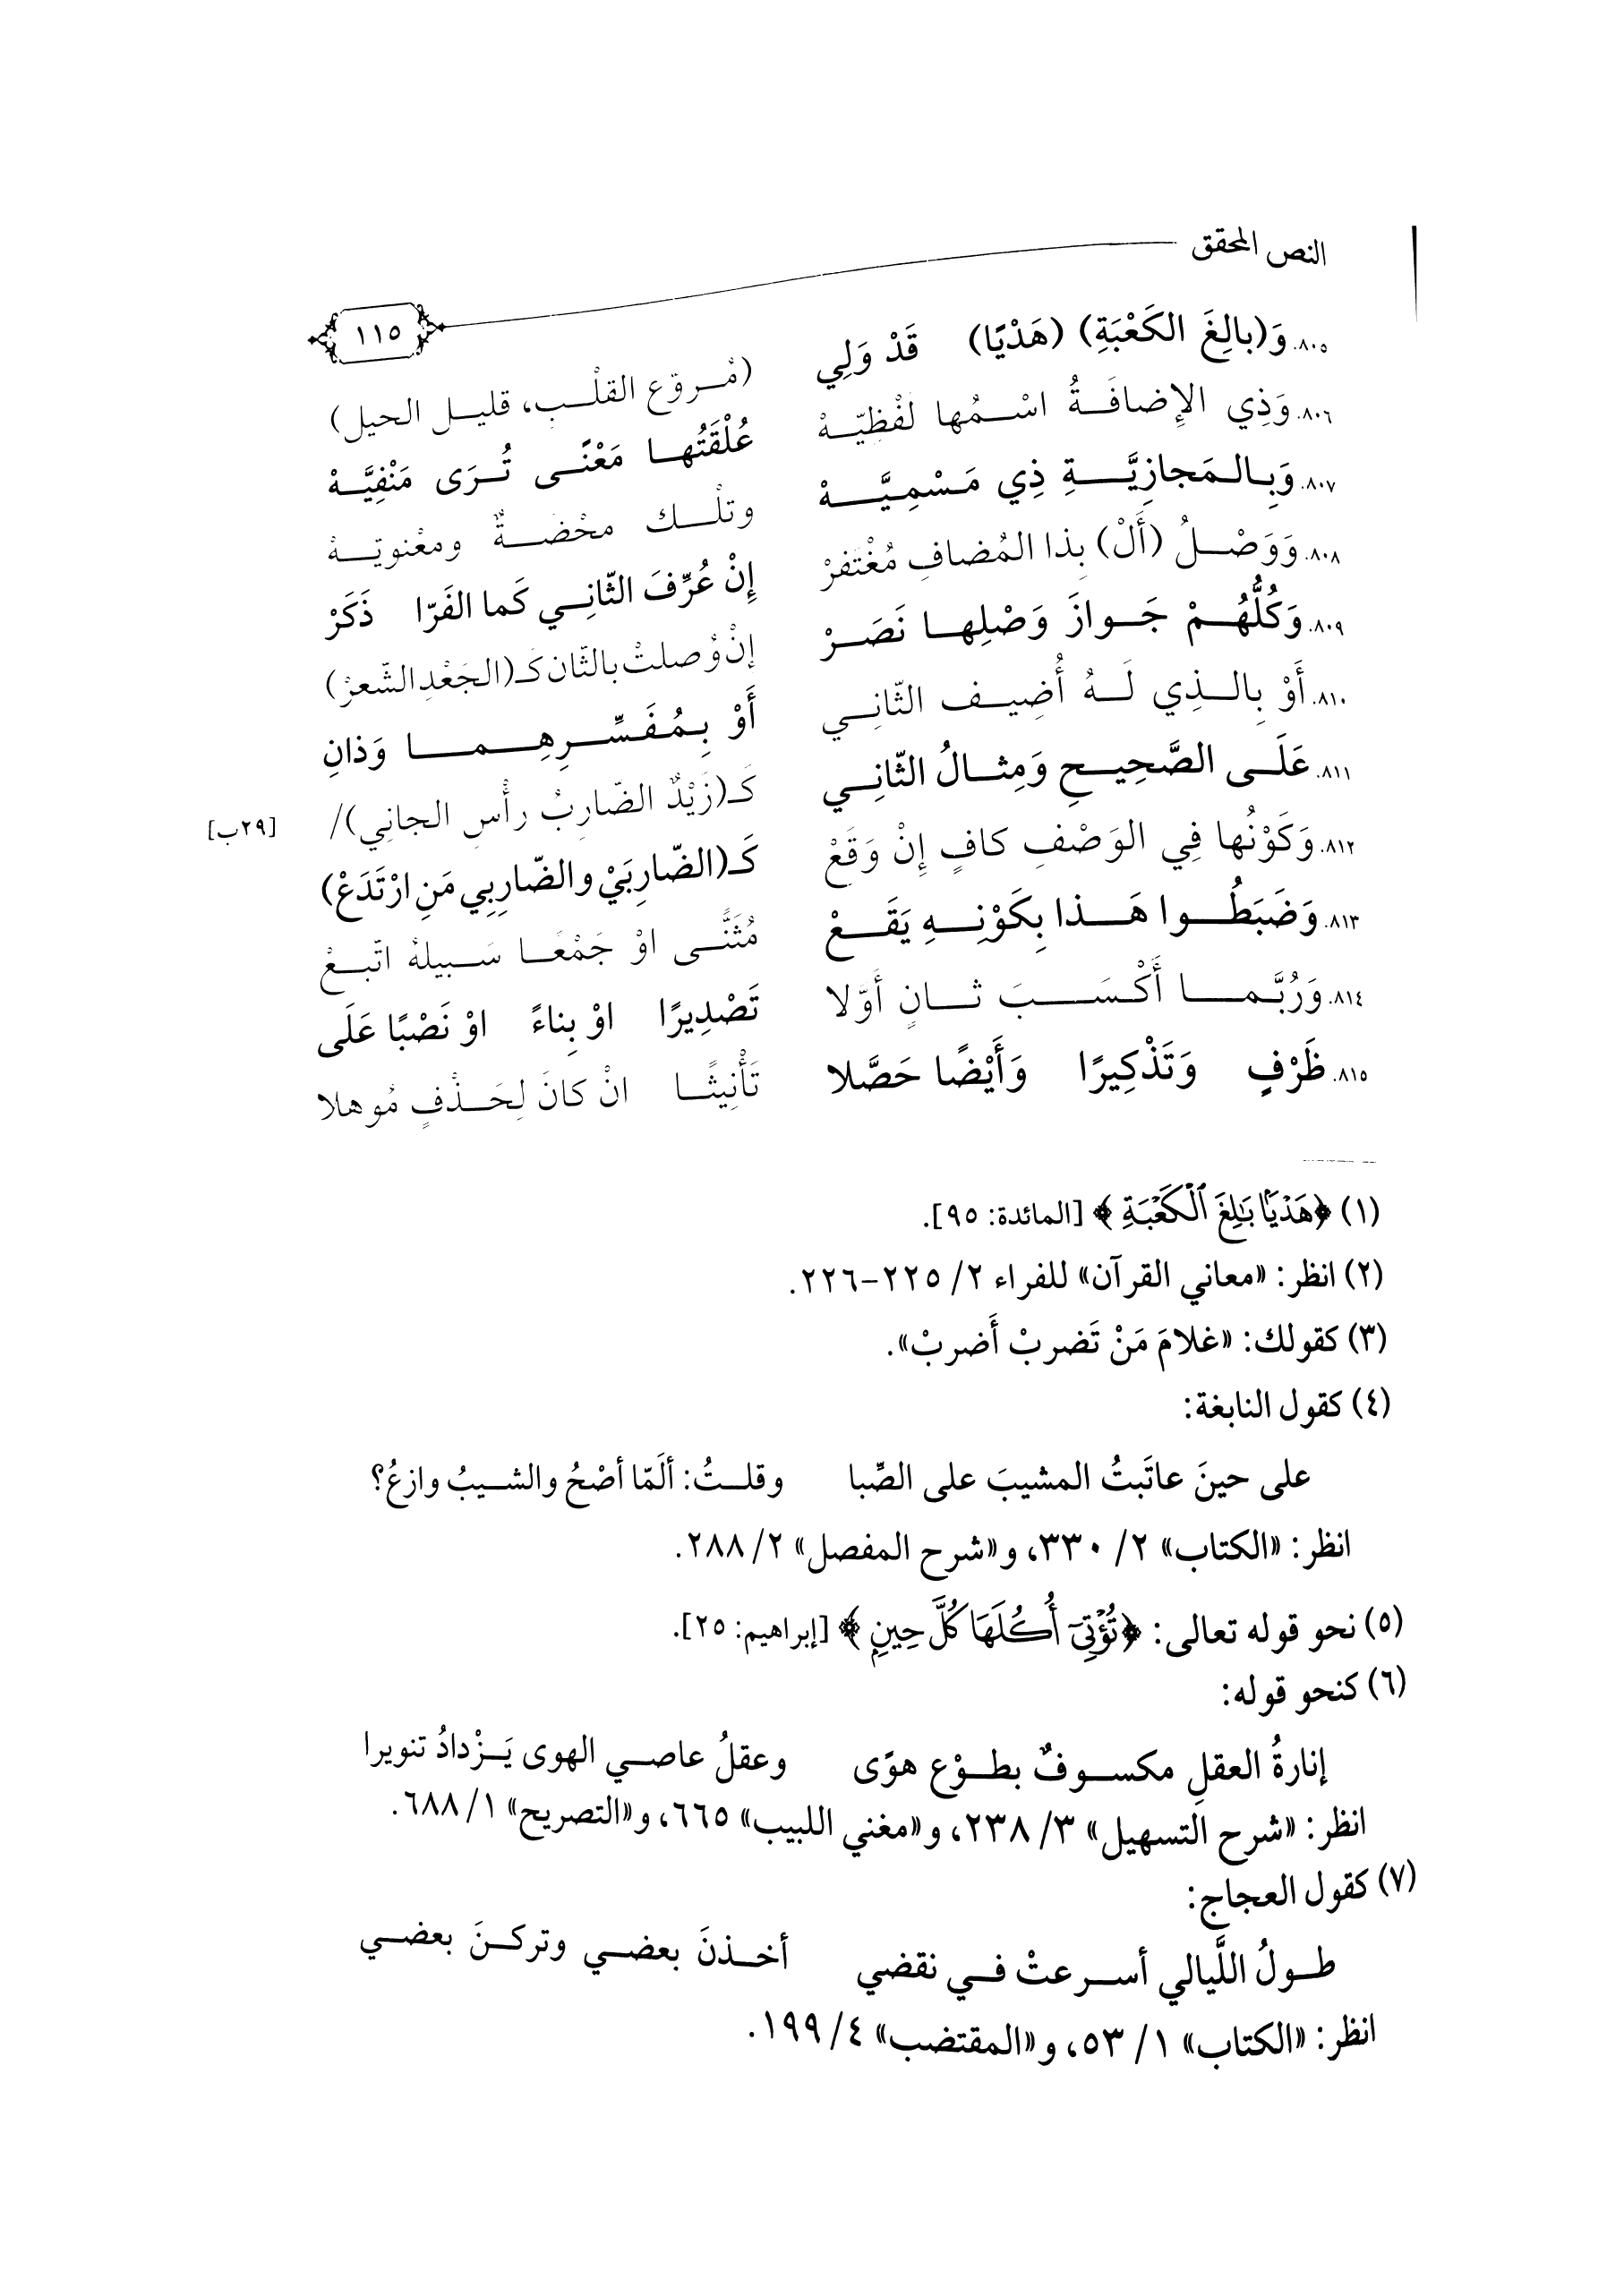 النص المحقق
١١٥
٨٠٥. وَ(بالِغَ الكَعْبَةِ) (هَدْيًا) قَدْ وَلِي (مُروَّعِ القلْبِ، قليلِ الحيلِ)
٨٠٦. وَذِي الإِضافَةُ اسْمُها لَفْظِيّهْ عُلْقَتُها مَعْنًى تُرَى مَنْفِيَّهْ
٨٠٧. وَبِالمَجازِيَّةِ ذِي مَسْمِيَّهْ وتلْك محْضةٌ ومعْنويّهْ
٨٠٨. وَوَصْلُ (أَلْ) بِذا المُضافِ مُغْتَفرْ إِنْ عُرِّفَ الثّانِي كَما الفَرّا ذَكَرْ
٨٠٩. وَكُلُّهُمْ جَوازَ وَصْلِها نَصَرْ إنْ وُصلتْ بالثّان كَـ(الجَعْدِ الشّعرْ)
٨١٠. أَوْ بِالذِي لَهُ أُضِيف الثّانِي أَوْ بِمُفَسِّرِهِما وَذانِ
٨١١. عَلَى الصَّحِيحِ وَمِثالُ الثّانِي كَـ(زَيْدٌ الضّارِبُ رأْسِ الجانِي)/ [٢٩ب]
٨١٢. وَكَوْنُها فِي الوَصْفِ كافٍ إِنْ وَقَعْ كَـ(الضّارِبَيْ والضّارِبِي مَنِ ارْتَدَعْ)
٨١٣. وَضَبَطُوا هَذا بِكَوْنِهِ يَقَعْ مُثَنًّى اوْ جَمْعًا سَبيلهُ اتّبعْ
٨١٤. وَرُبَّما أَكْسَبَ ثانٍ أَوّلا تَصْدِيرًا اوْ بِناءً اوْ نَصْبًا عَلَى
٨١٥. ظَرْفٍ وَتَذْكِيرًا وَأَيْضًا حَصَّلا تَأْنِيثًا انْ كانَ لِحَذْفٍ مُوهلا
(١) ﴿هَدْيًا بَالِغَ الْكَعْبَةِ﴾ [المائدة: ٩٥].
(٢) انظر: «معاني القرآن» للفراء ٢/ ٢٢٥-٢٢٦.
(٣) كقولك: «غلامَ مَنْ تَضربْ أَضربْ».
(٤) كقول النابغة:
على حينَ عاتَبتُ المشيبَ على الصِّبا وقلتُ: ألَمّا أصْحُ والشيبُ وازعُ؟
انظر: «الكتاب» ٢/ ٣٣٠، و«شرح المفصل» ٢/ ٢٨٨.
(٥) نحو قوله تعالى: ﴿تُؤْتِي أُكُلَهَا كُلَّ حِينٍ﴾ [إبراهيم: ٢٥].
(٦) كنحو قوله:
إنارةُ العقلِ مكسوفٌ بطوْعِ هوًى وعقلُ عاصي الهوى يَزْدادُ تنويرا
انظر: «شرح التسهيل» ٣/ ٢٣٨، و«مغني اللبيب» ٦٦٥، و«التصريح» ١/ ٦٨٨.
(٧) كقول العجاج:
طولُ اللَّيالي أسرعتْ في نقضي أخذنَ بعضي وتركنَ بعضي
انظر: «الكتاب» ١/ ٥٣، و«المقتضب» ٤/ ١٩٩.